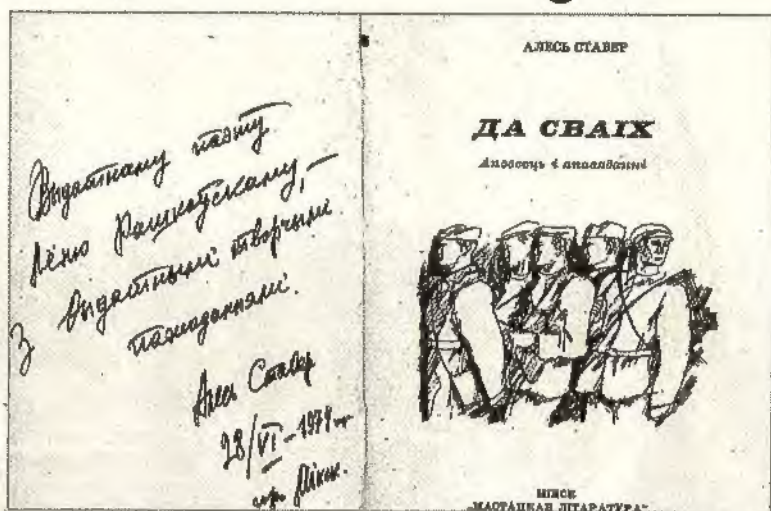 Выдатнаму паэту
Лёню Рашкоўскаму, —
З выдатнымі творчымі
пажаданнямі.
Алесь Ставер
28/VI – 1974 г.
Мінск.
АЛЕСЬ СТАВЕР
ДА СВАІХ
Аповесць і апавяданні
МІНСК
„МАСТАЦКАЯ ЛІТАРАТУРА"